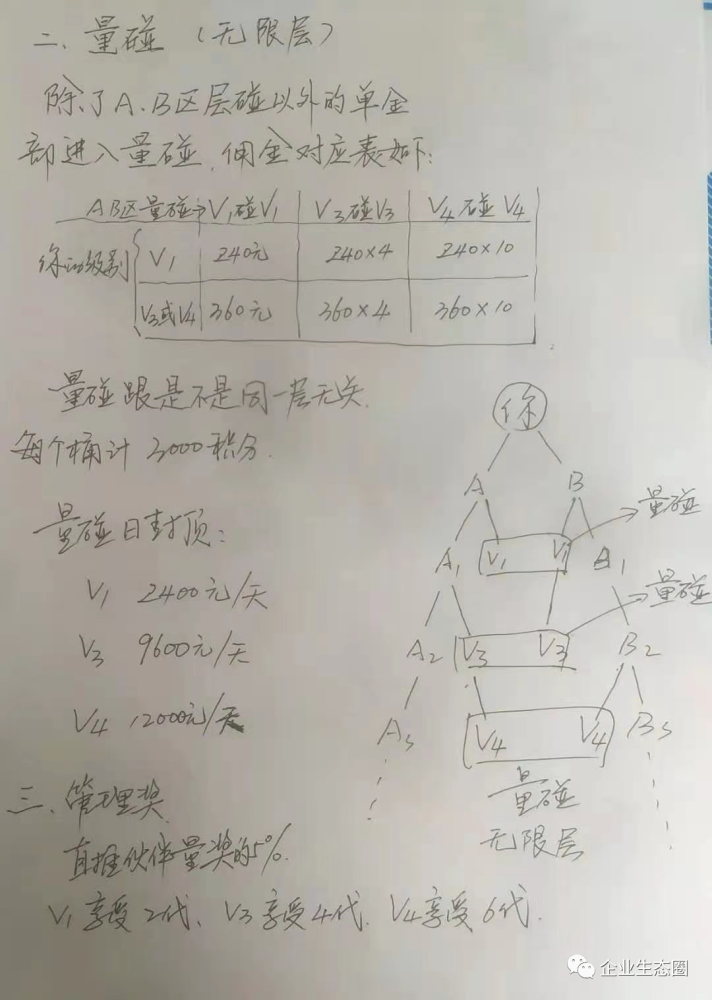 二、量碰（无限层）
除了A.B区层碰以外的单全
部进入量碰,佣金对应表如下:
AB区量碰→ V1碰V1 V3碰V3 V4碰V4
你的级别 V1 240元 240×4 240×10
V3或V4 360元 360×4 360×10
量碰跟是不是同一层无关.
每个桶计 3000积分.
量碰日封顶:
V1 2400元/天
V3 9600元/天
V4 12000元/天
你
A B
A1 V1 V1 B1 量碰
A2 V3 V3 B2 量碰
A3 V4 V4 B3
量碰
无限层
三、管理奖
直推伙伴量奖的5%.
V1享受2代、V3享受4代.V4享受6代.
企业生态圈